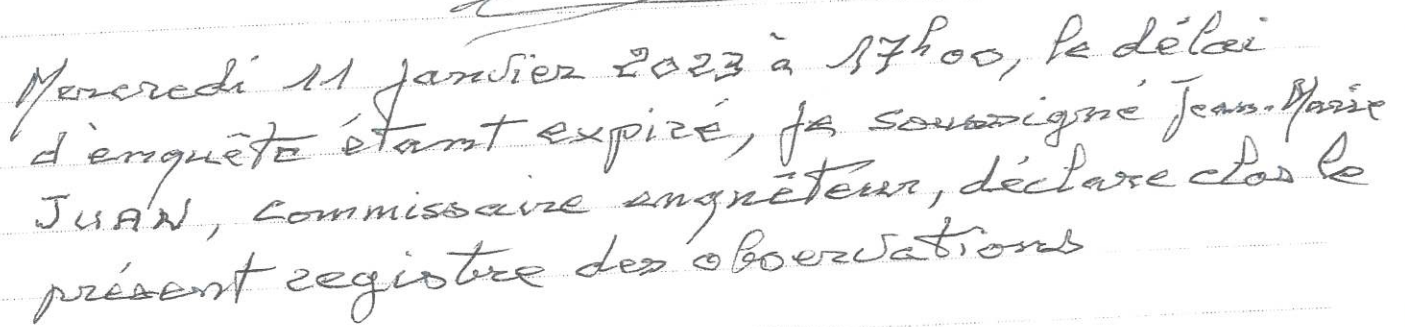 Mercredi 11 janvier 2023 à 17h00, le délai
d'enquête étant expiré, je soussigné Jean-Marie
JUAN, commissaire enquêteur, déclare clos le
présent registre des observations